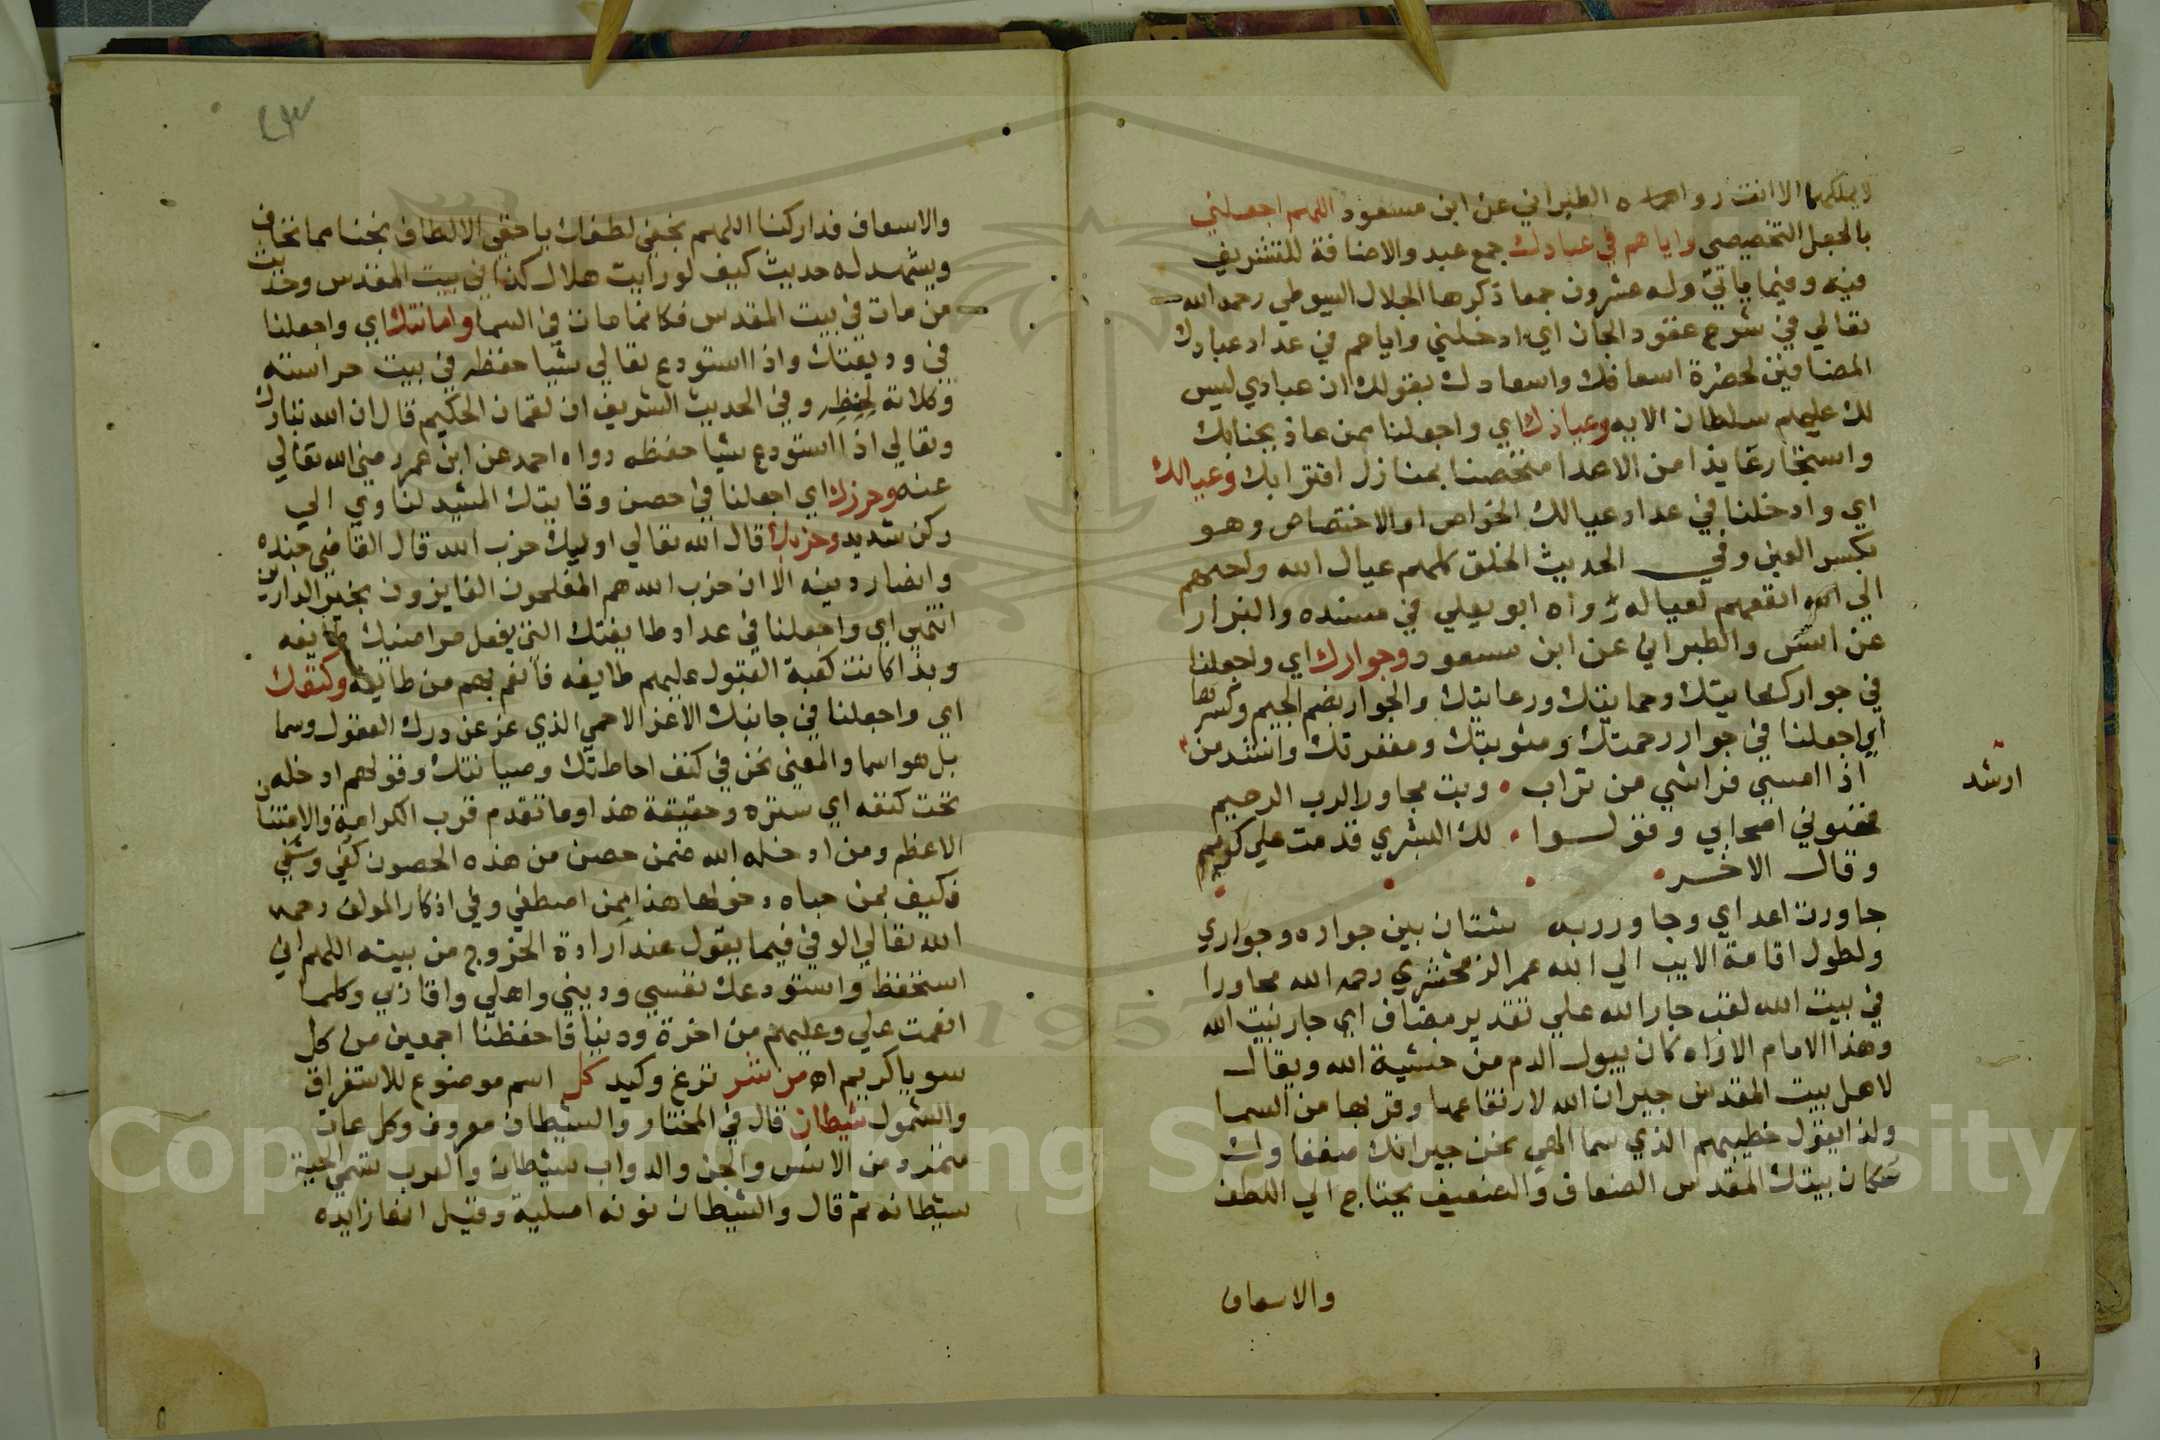 لا يملكهما الا انت رواه الطبراني عن ابن مسعود اللهم اجعلني
بالجعل التخصيصي واياهم في عبادك جمع عبد والاضافة للتشريف
فيه وفيما ياتي وله عشرون جمعا ذكرها الجلال السيوطي رحمه الله
تعالي في شرح عقود الجمان اي ادخلني واياهم في عداد عبادك
المضافين لحضرة اسعافك واسعادك بقولك ان عبادي ليس
لك عليهم سلطان الايه وعياذك اي واجعلنا ممن عاذ بجنابك
واستجار عايذا من الاعدا متخصنا بمنازل اقترابك وعيالك
اي وادخلنا في عداد عيالك الخواص او الاختصاص وهو
بكسر العين وفي الحديث الخلق كلهم عيال الله واحبهم
الي الله انفعهم لعياله رواه ابو يعلي في مسنده والبزار
عن انس والطبراني عن ابن مسعود وجوارك اي واجعلنا
في جوارك وحمايتك ورعايتك والجوار بضم الجيم وكسرها
اي اجعلنا في جوار رحمتك ومثوبتك ومغفرتك وانشد من
ارشد
اذا امسي فراشي من تراب وبت مجاور الرب الرحيم
فهنوني اصحابي وقولوا لك البشري قدمت علي كريم
وقال الاخر
جاورت اعداي وجاور ربه شتان بين جواره وجواري
ولطول اقامة الايب الي الله عمر الزمخشري رحمه الله مجاورا
في بيت الله لقب جار الله علي تقدير مضاف اي جار بيت الله
وهذا الامام الاواه كان يبول الدم من خشية الله ويقال
لاهل بيت المقدس جيران الله لارتفاعها وقربها من السما
ولذا يقول خطيبهم الذي سما الهي نحن جيرانك ضعفا وات
سكان بيتك المقدس الضعاف والضعيف يحتاج الي اللطف
والاسعاف
والاسعاف فداركنا اللهم بخفي لطفك يا خفي الالطاف نجنا مما نخاف
ويشهد له حديث كيف لو رايت هلال كذا في بيت المقدس وحديث
من مات في بيت المقدس فكانما مات في السما وامانتك اي واجعلنا
في وديعتك واذا استودع تعالي شيا حفظه في بيت حراسته
وكلاته لحفظه وفي الحديث الشريف ان لقمان الحكيم قال ان الله تبارك
وتعالي اذا استودع شيا حفظه رواه احمد عن ابن عمر رضي الله تعالي
عنه وحرزك اي اجعلنا في حصن وقايتك المشيد لناوي الي
ركن شديد وحزبك قال الله تعالي اوليك حزب الله قال القاضي جنده
وانصار دينه الا ان حزب الله هم المفلحون الفايزون بخير الدارين
انتهي اي واجعلنا في عداد طايفتك التي يفعل مراضيك طايفه
وبذا كانت كعبة القبول عليهم طايفه فانعم بهم من طايفة وكنفك
اي واجعلنا في جانبك الاعز الاحمي الذي عز عن درك العقول وسما
بل هو اسما والمعني نحن في كنف احاطتك وصيانتك وقولهم ادخله
تحت كنفه اي ستره وحقيقة هذا وما تقدم قرب الكرامة والامتنان
الاعظم ومن ادخله الله ضمن حصن من هذه الحصون كفي وشفي
فكيف بمن حباه دخولها هذا ممن اصطفي وفي اذكار المولف رحمه
الله تعالي الوفي فيما يقول عند ارادة الخروج من بيته اللهم اني
استحفظ واستودعك نفسي وديني واهلي واقاربي وكلما
انعمت علي وعليهم من اخرة ودنيا فاحفظنا اجمعين من كل
سو يا كريم اه من شر نزغ وكيد كل اسم موضوع للاستغراق
والشمول شيطان قال في المختار والشيطان معروف وكل عات
متمرد من الانس والجن والدواب شيطان والعرب تسمي الحية
شيطانه ثم قال والشيطان نونه اصلية وقيل انها زايده
Copyright © King Saud University
1957